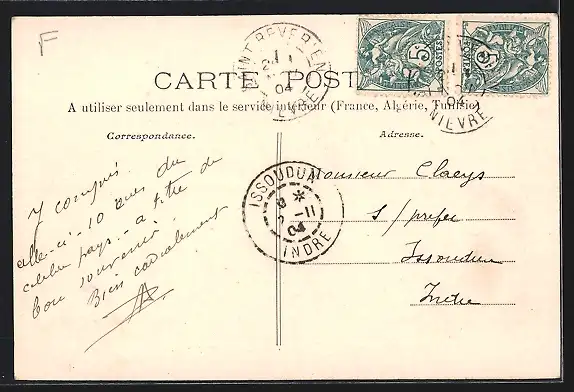 F
SAINT REVERIEN
04
NIEVRE
5c
POSTES
5c
POSTES
04
NIEVRE
CARTE POST
A utiliser seulement dans le service intérieur (France, Algérie, Tunisie)
Correspondance.
Adresse.
Y compris
celle-ci - 10 vues du
célèbre pays - à titre de
bon souvenir
Bien cordialement
ISSOUDUN
2 - 11
04
INDRE
Monsieur Claeys
S/préfet
Issoudun
Indre